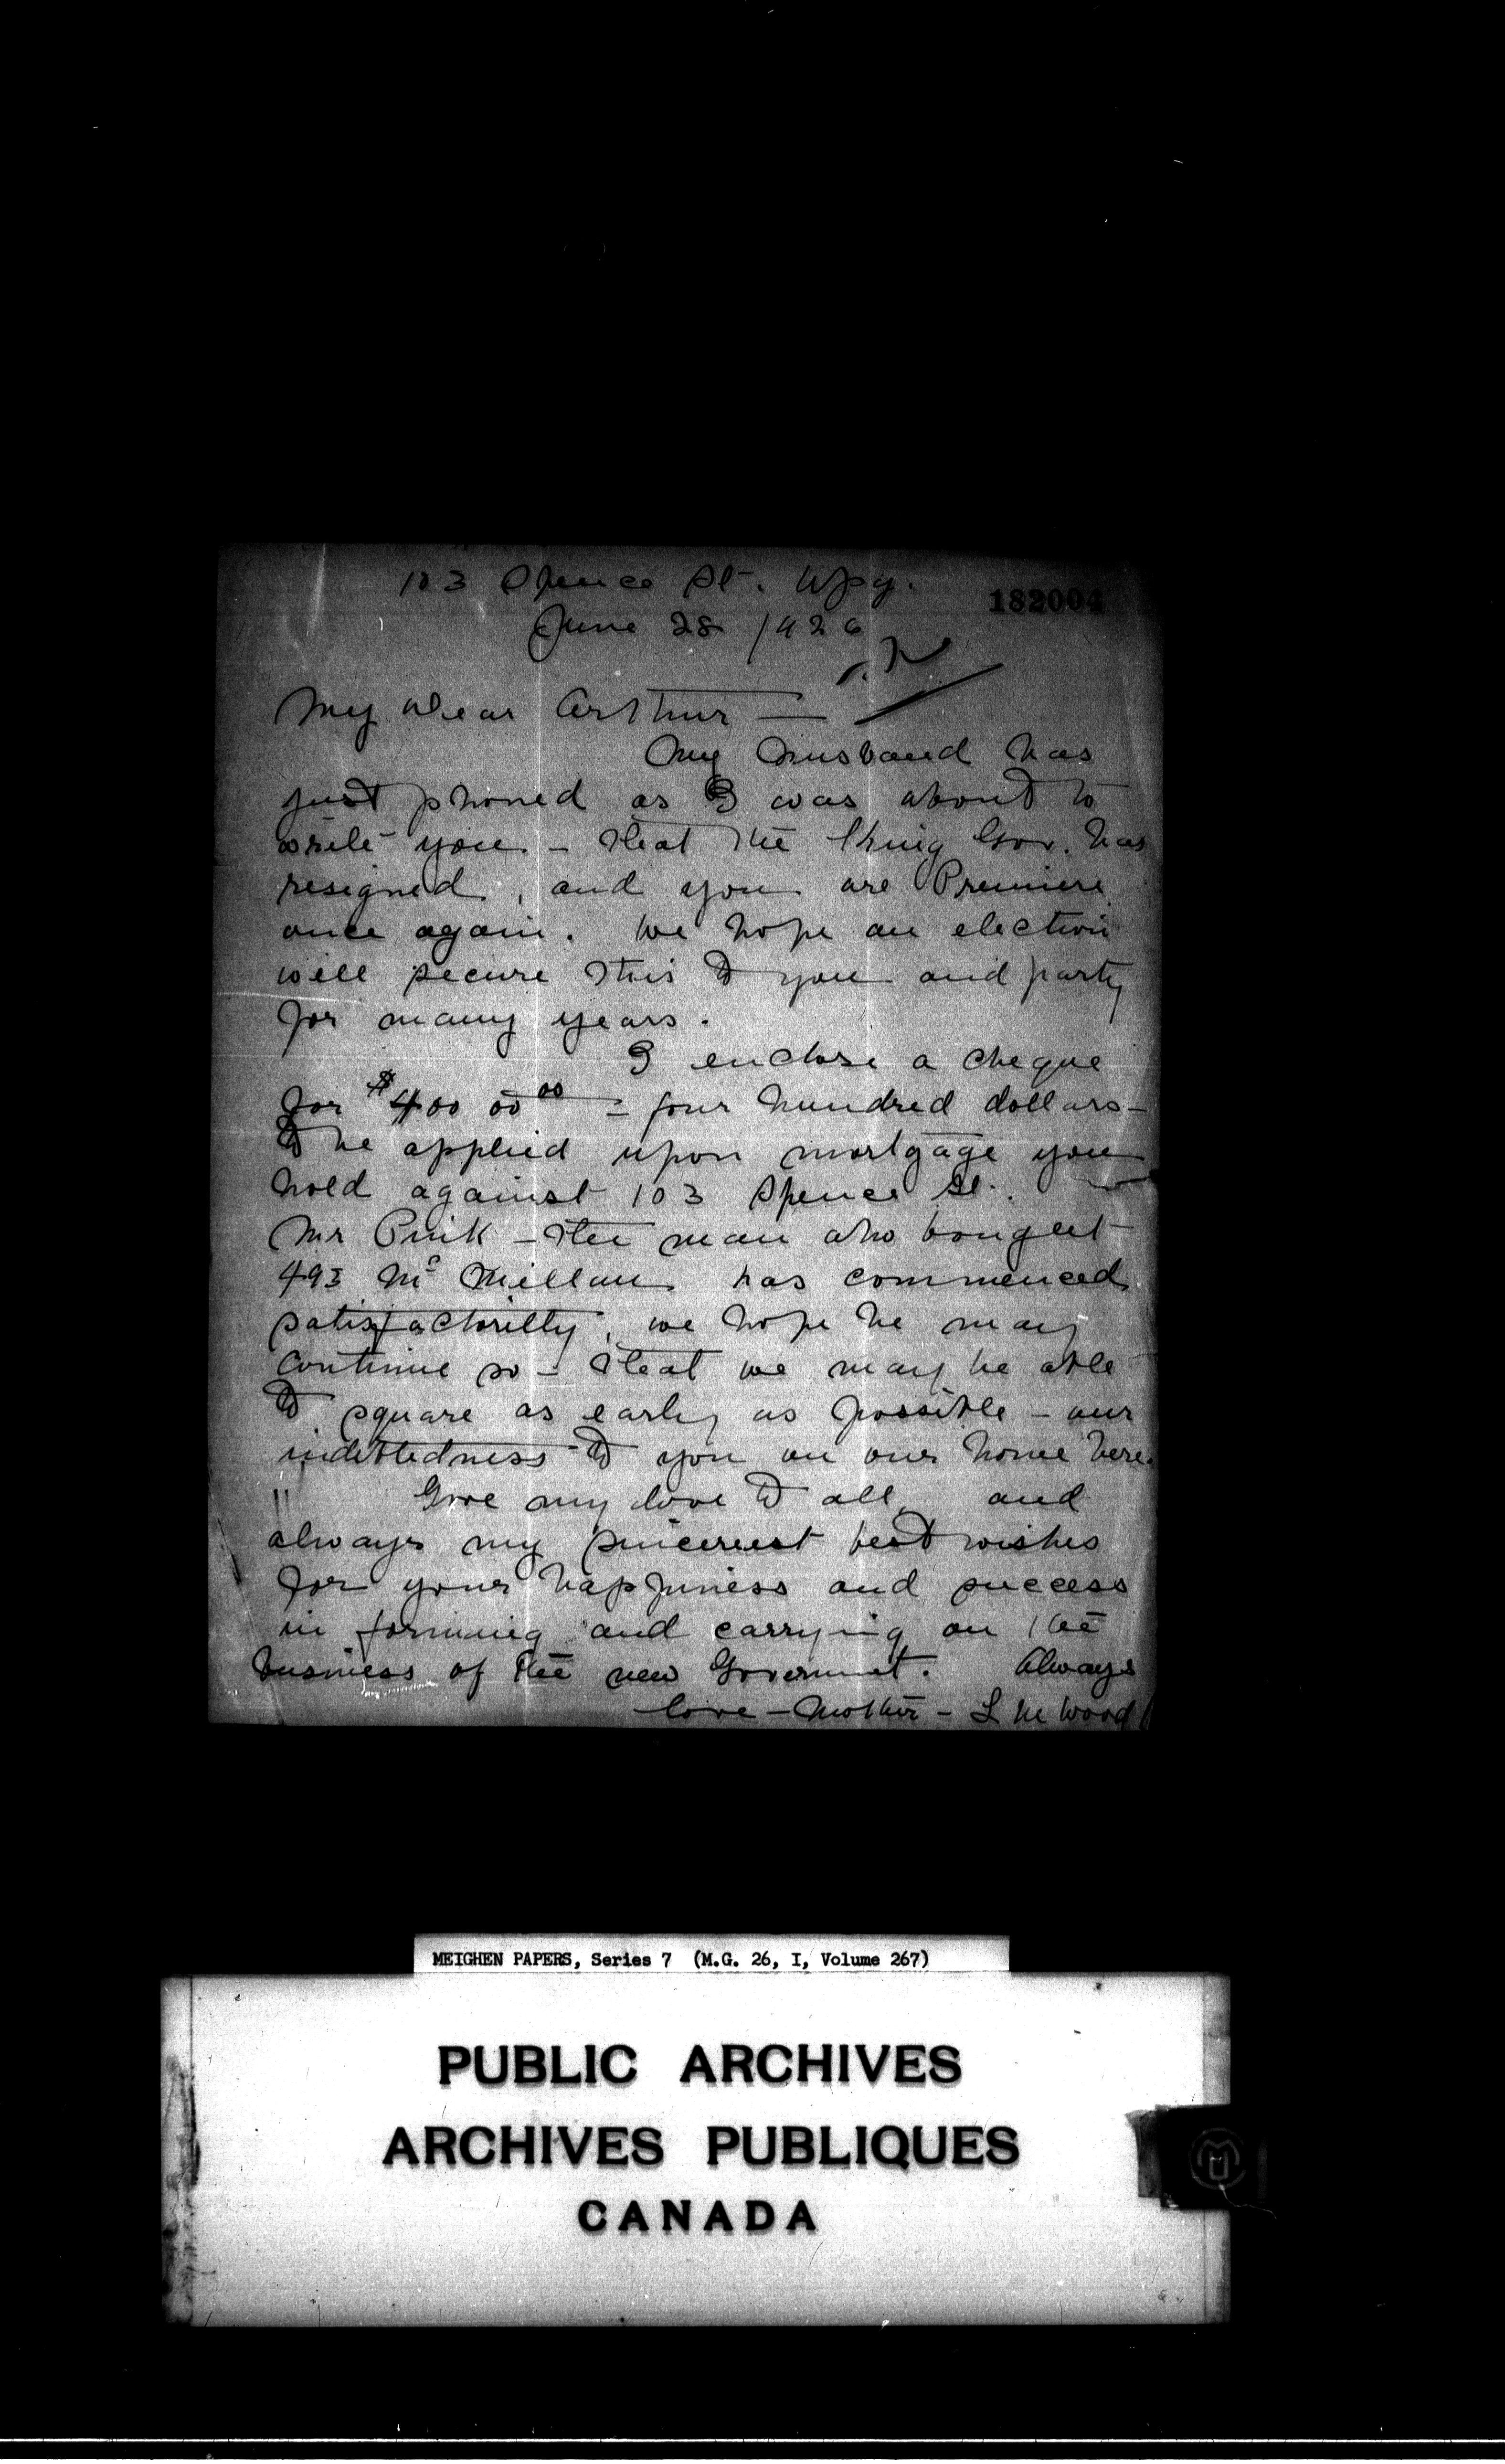 103 Spence St. Wpg.
182004
June 28 1926
My dear Arthur —
My husband has
just phoned as I was about to
write you. - that the King Gov. has
resigned, and you are Premiere
once again. We hope an election
will secure this to you and party
for many years.
I enclose a cheque
for $400 00 00 = four hundred dollars -
to be applied upon mortgage you
hold against 103 Spence St.
Mr Pink - the man who bought
493 Mc Millan has commenced
satisfactorilly, we hope he may
continue so - that we may be able
to square as early as possible - our
indebtedness to you on our home here.
Give my love to all, and
always my sincerest best wishes
for your happiness and success
in forming and carrying on the
business of the new Goverment. Always
love - Mother - L M Wood
MEIGHEN PAPERS, Series 7 (M.G. 26, I, Volume 267)
PUBLIC ARCHIVES
ARCHIVES PUBLIQUES
CANADA